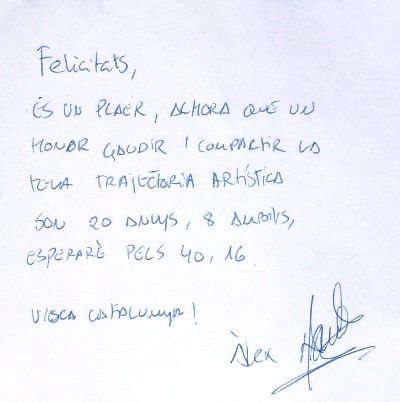 Felicitats,
ÉS UN PLAER, ALHORA QUE UN
HONOR GAUDIR I COMPARTIR LA
TEVA TRAJECTÒRIA ARTÍSTICA
SON 20 ANYS, 8 ÀLBUMS,
ESPERARÉ PELS 40, 16.
VISCA CATALUNYA!
Àlex